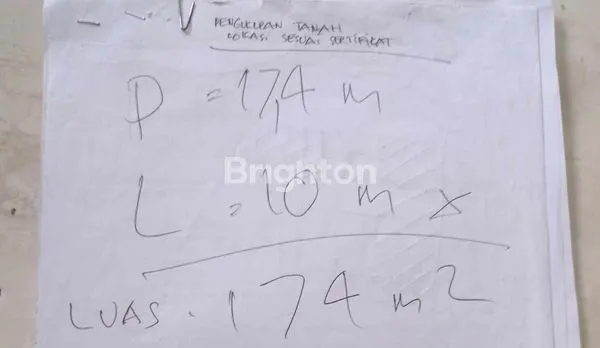 PENGUKURAN TANAH
LOKASI SESUAI SERTIFIKAT
P = 17,4 m
L = 10 m x
Brighton
LUAS = 174 m2